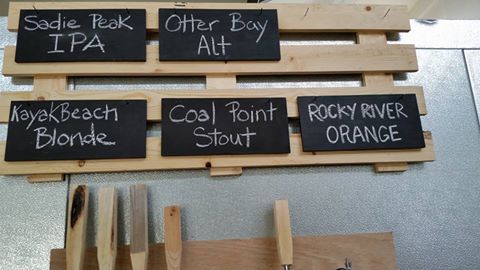 Sadie Peak
IPA
Otter Bay
Alt
KayakBeach
Blonde
Coal Point
Stout
ROCKY RIVER
ORANGE